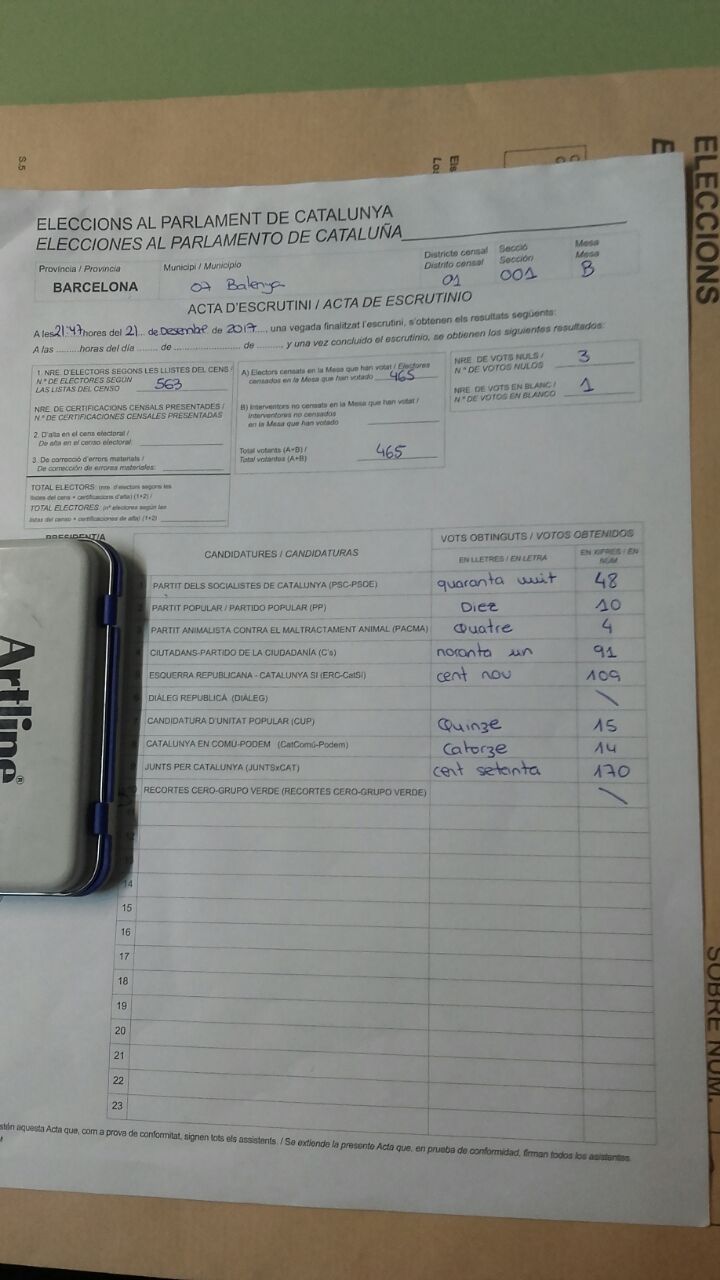 S.5
ELECCIONS
ELECCIONS AL PARLAMENT DE CATALUNYA
ELECCIONES AL PARLAMENTO DE CATALUÑA
Província / Provincia
BARCELONA
Municipi / Municipio
07 Balenya
Districte censal
Distrito censal
01
Secció
Sección
001
Mesa
Mesa
B
ACTA D'ESCRUTINI / ACTA DE ESCRUTINIO
A les 21:47 hores del 21 de Desembre de 2017, una vegada finalitzat l'escrutini, s'obtenen els resultats següents:
A las ........ horas del día ........ de ........ de ........, y una vez concluido el escrutinio, se obtienen los siguientes resultados:
1. NRE. D'ELECTORS SEGONS LES LLISTES DEL CENS /
N.º DE ELECTORES SEGÚN
LAS LISTAS DEL CENSO 563
NRE. DE CERTIFICACIONS CENSALS PRESENTADES /
N.º DE CERTIFICACIONES CENSALES PRESENTADAS
2. D'alta en el cens electoral /
De alta en el censo electoral:
3. De correcció d'errors materials /
De corrección de errores materiales:
TOTAL ELECTORS: (nre. d'electors segons les
llistes del cens + certificacions d'alta) (1+2) /
TOTAL ELECTORES: (nº electores según las
listas del censo + certificaciones de alta) (1+2)
A) Electors censats en la Mesa que han votat / Electores
censados en la Mesa que han votado 465
B) Interventors no censats en la Mesa que han votat /
Interventores no censados
en la Mesa que han votado
Total votants (A+B) /
Total votantes (A+B) 465
NRE. DE VOTS NULS /
N.º DE VOTOS NULOS 3
NRE. DE VOTS EN BLANC /
N.º DE VOTOS EN BLANCO 1
CANDIDATURES / CANDIDATURAS
VOTS OBTINGUTS / VOTOS OBTENIDOS
EN LLETRES / EN LETRA
EN XIFRES / EN NÚM
PARTIT DELS SOCIALISTES DE CATALUNYA (PSC-PSOE) quaranta vuit 48
PARTIT POPULAR / PARTIDO POPULAR (PP) Diez 10
PARTIT ANIMALISTA CONTRA EL MALTRACTAMENT ANIMAL (PACMA) Quatre 4
CIUTADANS-PARTIDO DE LA CIUDADANÍA (C's) noranta un 91
ESQUERRA REPUBLICANA - CATALUNYA SÍ (ERC-CatSí) cent nou 109
DIÀLEG REPUBLICÀ (DIÀLEG) \
CANDIDATURA D'UNITAT POPULAR (CUP) Quinze 15
CATALUNYA EN COMÚ-PODEM (CatComú-Podem) Catorze 14
JUNTS PER CATALUNYA (JUNTSxCAT) cent setanta 170
RECORTES CERO-GRUPO VERDE (RECORTES CERO-GRUPO VERDE) \
14
15
16
17
18
19
20
21
22
23
aquesta Acta que, com a prova de conformitat, signen tots els assistents. / Se extiende la presente Acta que, en prueba de conformidad, firman todos los asistentes.
Artline®
SOBRE NÚM.